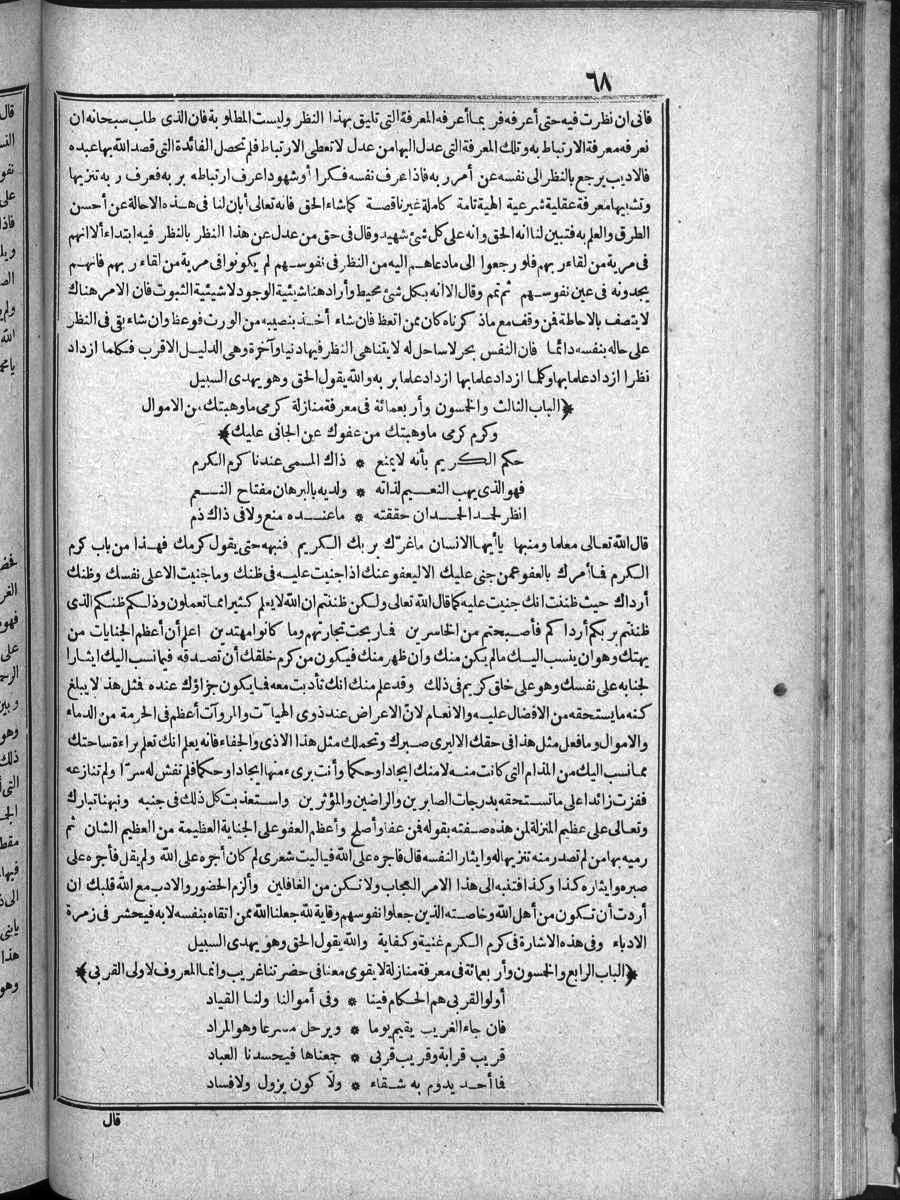 ٦٨
فانى ان نظرت فيه حتى أعرفه فربما أعرفه المعرفة التى تليق بهذا النظر وليست المطلوبة فان الذى طلب سبحانه ان
نعرفه معرفة الارتباط به وتلك المعرفة التى عدل اليها من عدل لا تعطى الارتباط فلم تحصل الفائدة التى قصد الله بها عبده
فالاديب يرجع بالنظر الى نفسه عن أمر ربه فاذا عرف نفسه فكرا أو شهودا عرف ارتباطه بربه فعرف ربه تنزيها
وتشبيها معرفة عقلية شرعية الهية تامة كاملة غير ناقصة كما شاء الحق فانه تعالى أبان لنا فى هذه الاحالة عن أحسن
الطرق والعلم به فتبين لنا انه الحق وانه على كل شئ شهيد وقال فى حق من عدل عن هذا النظر بالنظر فيه ابتداء ألا انهم
فى مرية من لقاء ربهم فلو رجعوا الى ما دعاهم اليه من النظر فى نفوسهم لم يكونوا فى مرية من لقاء ربهم فانهم
يجدونه فى عين نفوسهم ثم تمم وقال الا انه بكل شئ محيط وأراد هنا شيئية الوجود لا شيئية الثبوت فان الامر هناك
لا يتصف بالاحاطة فمن وقف مع ما ذكرناه كان ممن اتعظ فان شاء أخذ بنصيبه من الورث فوعظ وان شاء بقى فى النظر
على حاله بنفسه دائما فان النفس بحر لا ساحل له لا يتناهى النظر فيها دنيا وآخرة وهى الدليل الاقرب فكلما ازداد
نظرا ازداد علما بها وكلما ازداد علما بها ازداد علما بربه والله يقول الحق وهو يهدى السبيل
﴿الباب الثالث والخمسون وأربعمائة فى معرفة منازلة كرمى ما وهبتك من الاموال
وكرم كرمى ما وهبتك من عفوك عن الجانى عليك﴾
حكم الكريم بأنه لا يمنع * ذاك المسمى عندنا كرم الكرم
فهو الذى يهب النعيم لذاته * ولديه بالبرهان مفتاح النعم
انظر لحمد الحمدان حققته * ما عنده منع ولا فى ذاك ذم
قال الله تعالى معلما ومنبها يا أيها الانسان ما غرّك بربك الكريم فنبهه حتى يقول كرمك فهذا من باب كرم
الكرم فأمرك بالعفو عمن جنى عليك الا ليعفو عنك اذا جنيت عليه فى ظنك وما جنيت الا على نفسك وظنك
أرداك حيث ظننت انك جنيت عليه كما قال الله تعالى ولكن ظننتم ان الله لا يعلم كثيرا مما تعملون وذلكم ظنكم الذى
ظننتم بربكم أرداكم فأصبحتم من الخاسرين فما ربحت تجارتهم وما كانوا مهتدين اعلم أن أعظم الجنايات من
يهتك وهو ان ينسب اليك ما لم يكن منك وان ظهر منك فيكون من كرم خلقك أن تصدقه فيما نسب اليك ايثارا
لجنابه على نفسك وهو على خلق كريم فى ذلك وقد علم منك انك تأدبت معه فما يكون جزاؤك عنده فمثل هذا لا يبلغ
كنه ما يستحقه من الافضال عليه والانعام لانّ الاعراض عند ذوى الهيآت والمروآت أعظم فى الحرمة من الدماء
والاموال وما فعل مثل هذا فى حقك الا ليرى صبرك وتحملك مثل هذا الاذى والجفاء فانه يعلم انك تعلم براءة ساحتك
مما نسب اليك من المذام التى كانت منه لا منك ايجادا وحكما وأنت برىء منها ايجادا وحكما فلم تفش له سرّا ولم تنازعه
ففزت زائدا على ما تستحقه بدرجات الصابرين والراضين والمؤثرين واستعذبت كل ذلك فى جنبه ونبهنا تبارك
وتعالى على عظيم المنزلة لمن هذه صفته بقوله فمن عفا وأصلح وأعظم العفو على الجناية العظيمة من العظيم الشان ثم
رميه بها من لم تصدر منه تنزيها له وايثار النفسه قال فأجره على الله فياليت شعرى لم كان أجره على الله ولم يقل فأجره على
صبره وايثاره كذا وكذا فتنبه الى هذا الامر العجاب ولا تكن من الغافلين وألزم الحضور والادب مع الله قلبك ان
أردت أن تكون من أهل الله وخاصته الذين جعلوا نفوسهم وقاية لله جعلنا الله ممن اتقاه بنفسه لا به فيحشر فى زمرة
الادباء وفى هذه الاشارة فى كرم الكرم غنية وكفاية والله يقول الحق وهو يهدى السبيل
﴿الباب الرابع والخمسون وأربعمائة فى معرفة منازلة لا يقوى معنا فى حضرتنا غريب وانما المعروف لاولى القربى﴾
أولو القربى هم الحكام فينا * وفى أموالنا ولنا القياد
فان جاء الغريب يقيم يوما * ويرحل مسرعا وهو المراد
قريب قرابة وقريب قربى * جمعناها فيحسدنا العباد
فما أحد يدوم به شقاء * ولا كون يزول ولا فساد
قال